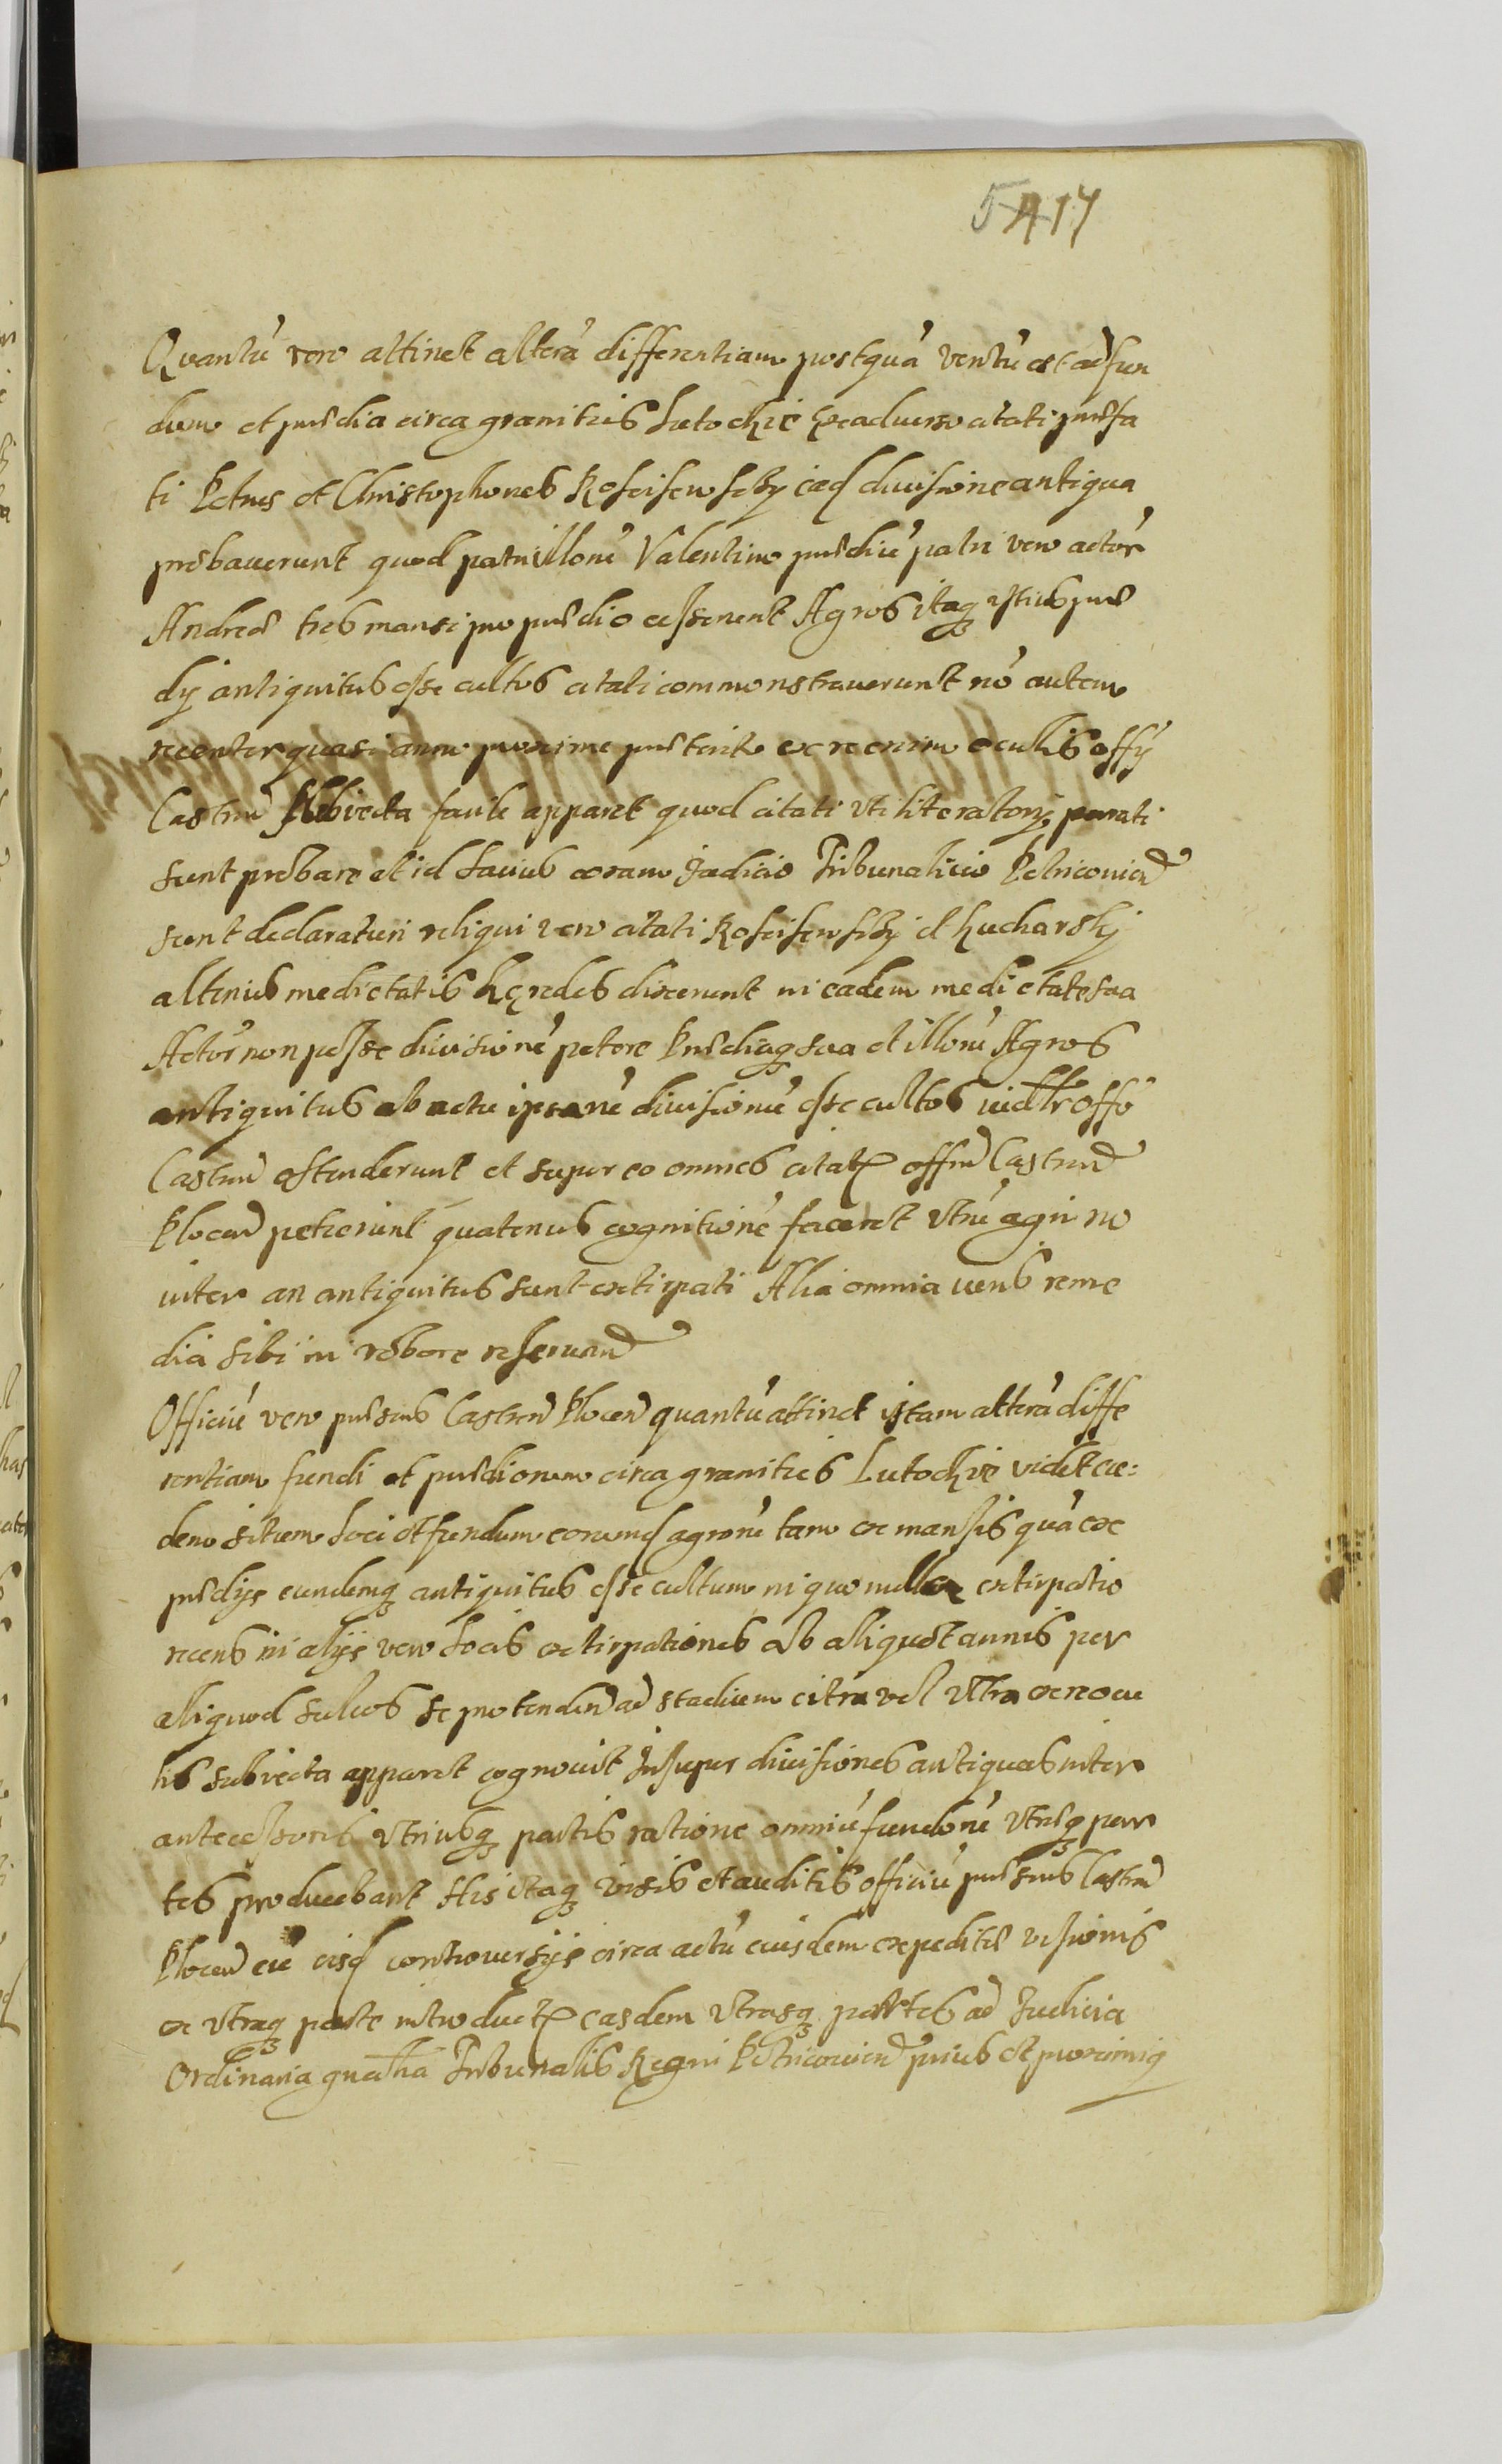 5417
Quantū vero attinet alterā differentiam postquā ventū est ad fun
dum et prędia circa granities Lutochże ex aduerso citati pręfa
ti Petrus et Christophorus Kosciensczy eād diuisione antiqua
probauerunt quod patri illorū Valentino prędiū patri vero actor̄
Andreę tres mansi pro prędio cesserunt Agros itaq̨ istius prę
dy antiquitus esse cultos citati commonstrauerunt nō autem
recenter quasi anno proxime pręterito ex re enim oculis offȳ
Castreñ subiecta facile apparet quod citati vti literatory parati
sunt probare et id Sacius coram Judicio Tribunalicio Petricouieñ
sunt declaraturi reliqui vero citati et Kucharsky
alterius medietatis hęredes dixerunt in eadem medietate sua
Actor̄ non posse diuisionē petere Prędiaq̨ sua et illorū Agros
antiquitus ab actu ipsarū diuisionū esse cultos offo
Castreñ ostenderunt et super eo omnes citati offiū Castreñ
Ploceñ petierunt quatenus cognitionē faceret vtrū agri no
uiter an antiquitus sunt extirpati Alia omnia iuris reme
dia sibi in robore reseruañ
Officiū vero pręsens Castreñ Ploceñ quantū attinet istam alterā diffe
rentiam fundi et prędiorum circa granities Lutochże videt ea:
dem situm loci et fundum eorumd agrorū tam ex mansis quā ex
prędijs eundemq̨ antiquitus esse cultum in quo nulla extirpatio
recens in alijs vero locis extirpationes ab aliquot annis per
aliquod sulcos se protendeñ ad stadium citra vel vltra ex re ocu
lis subiecta apparet cognouit Insuper diuisiones antiquas inter
antecessores vtriusq̨ partis ratione omniū fundorū vtręq̨ par
tes producebant His itaq̨ visis et auditis officiū pręsens Castreñ
Ploceñ cū eisd controuersijs circa actū eiusdem expeditę visionis
ex vtraq̨ parte introductis easdem vtrasq̨ partes ad Judicia
Ordinaria gñalia Tribunalis Regni Petricouieñ prius et proximiq